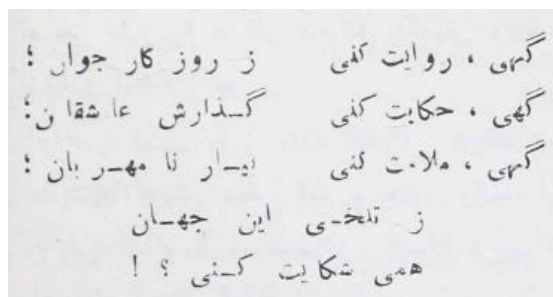 گهی ، روایت کنی ز روز کار جوان ؛
گهی ، حکایت کنی گذارش عاشقان ؛
گهی ، ملامت کنی بیار نا مهربان ؛
ز تلخی این جهان
همی شکایت کنی ؟ !